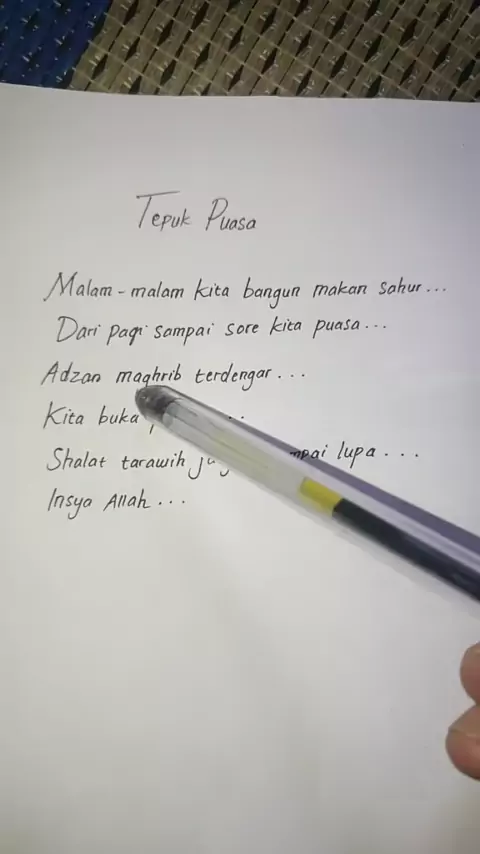 Tepuk Puasa
Malam-malam kita bangun makan sahur...
Dari pagi sampai sore kita puasa...
Adzan maghrib terdengar...
Kita buka ...
Shalat tarawih lupa...
Insya Allah...